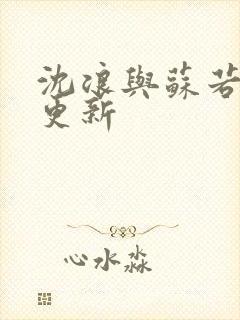 沈浪與蘇若
更新
心水淼